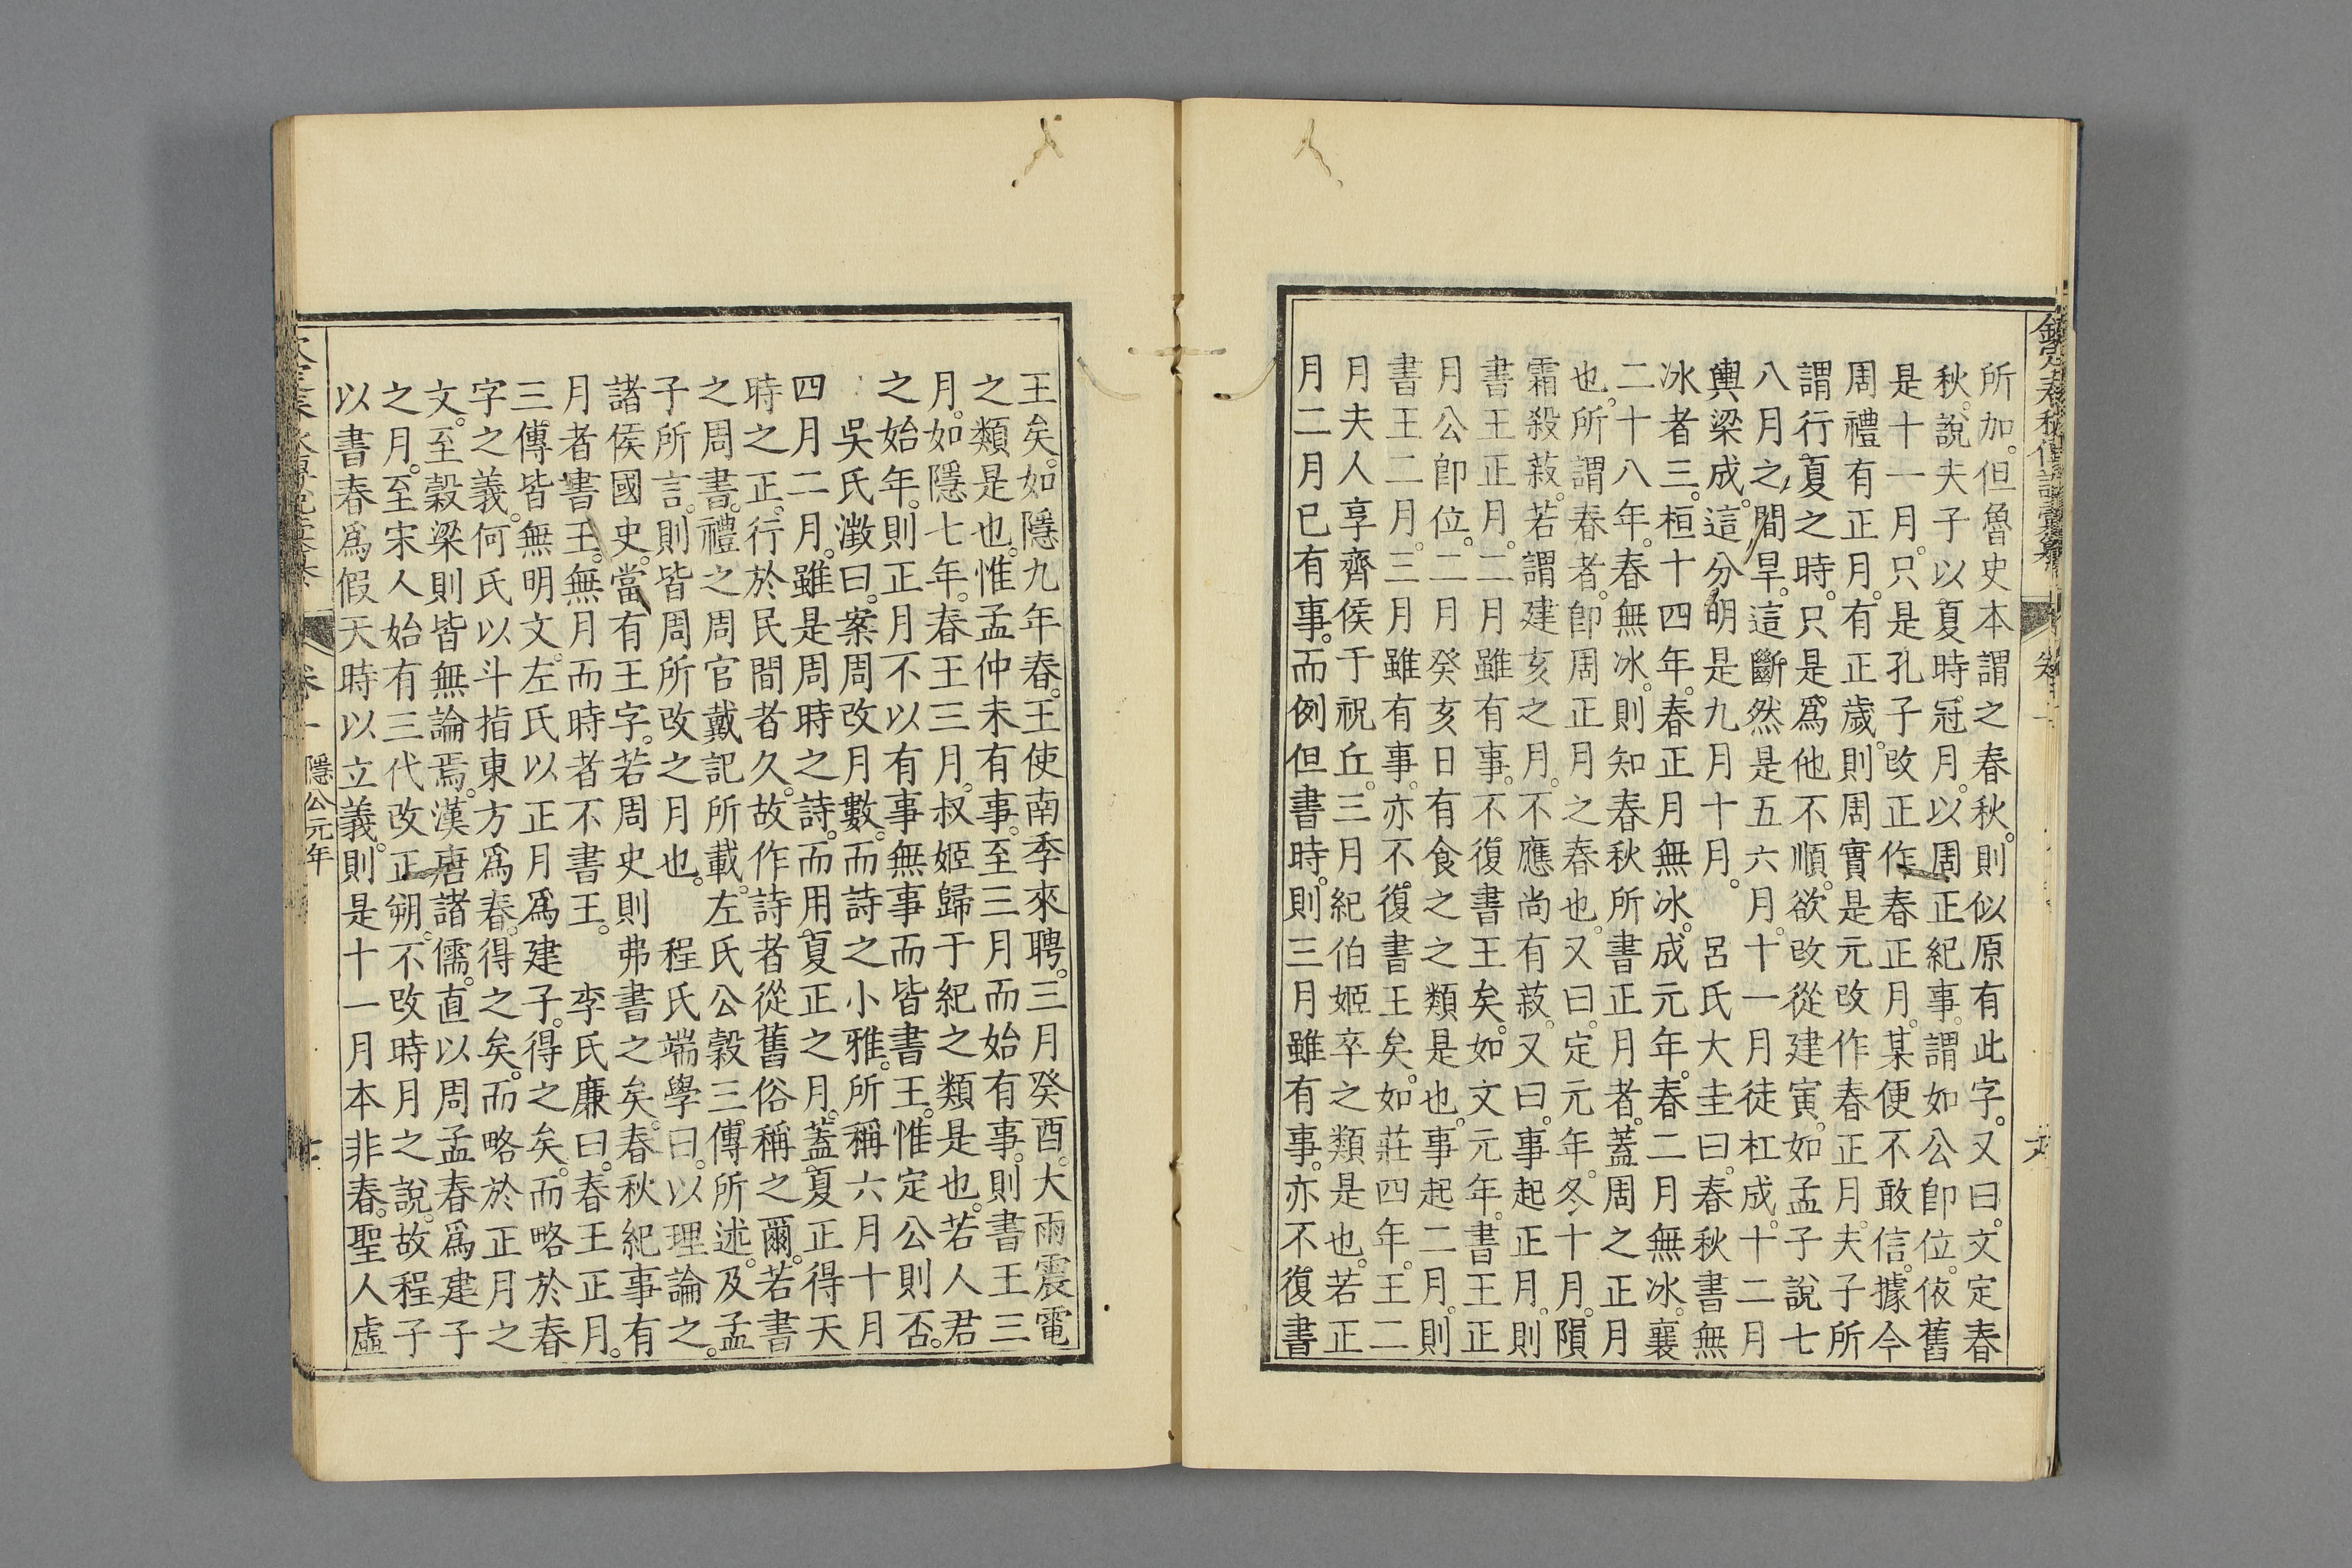 所加。但魯史本謂之春秋。則似原有此字。又曰。文定春
秋。說夫子以夏時冠月。以周正紀事。謂如公卽位。依舊
是十一月。只是孔子改正作春正月。某便不敢信。據今
周禮有正月。有正歲。則周實是元改作春正月。夫子所
謂行夏之時。只是爲他不順。欲改從建寅。如孟子說七
八月之間旱。這斷然是五六月。十一月徒杠成。十二月
輿梁成。這分明是九月十月。 呂氏大圭曰。春秋書無
冰者三。桓十四年。春正月無冰。成元年。春二月無冰。襄
二十八年。春無冰。則知春秋所書正月者。蓋周之正月
也。所謂春者。卽周正月之春也。又曰。定元年。冬十月。隕
霜殺菽。若謂建亥之月。不應尚有菽。又曰。事起正月。則
書王正月。二月雖有事。不復書王矣。如文元年。書王正
月公卽位。二月癸亥日有食之之類是也。事起二月。則
書王二月。三月雖有事。亦不復書王矣。如莊四年。王二
月夫人享齊侯于祝丘。三月紀伯姬卒之類是也。若正
月二月已有事。而例但書時。則三月雖有事。亦不復書
王矣。如隱九年春。王使南季來聘。三月癸酉。大雨震電
之類是也。惟孟仲未有事。至三月而始有事。則書王三
月。如隱七年。春王三月。叔姬歸于紀之類是也。若人君
之始年。則正月不以有事無事而皆書王。惟定公則否。
吳氏澂曰。案周改月數。而詩之小雅。所稱六月十月
四月二月。雖是周時之詩。而用夏正之月。蓋夏正得天
時之正。行於民間者久。故作詩者從舊俗稱之爾。若書
之周書。禮之周官戴記所載。左氏公穀三傳所述。及孟
子所言。則皆周所改之月也。 程氏端學曰。以理論之。
諸侯國史。當有王字。若周史則弗書之矣。春秋紀事有
月者書王。無月而時者不書王。 李氏廉曰。春王正月。
三傳皆無明文。左氏以正月爲建子。得之矣。而略於春
字之義。何氏以斗指東方爲春。得之矣。而略於正月之
文。至穀梁則皆無論焉。漢唐諸儒。直以周孟春爲建子
之月。至宋人始有三代改正朔。不改時月之說。故程子
以書春爲假天時以立義。則是十一月本非春。聖人虛
卷一 隱公元年